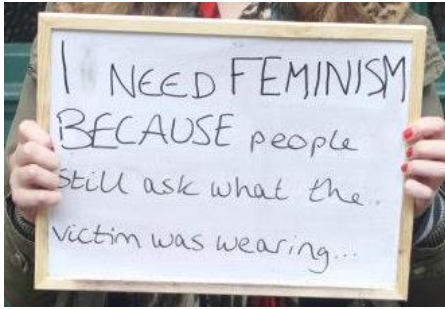 I NEED FEMINISM
BECAUSE people
still ask what the.
victim was wearing...